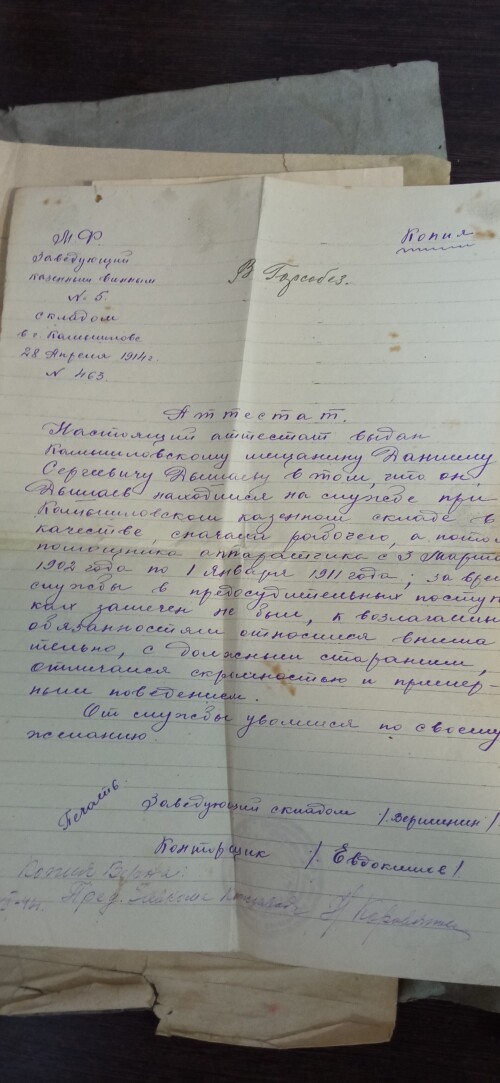 М. Ф.
Копия
Заведующий
казенным винным
В Горсобез.
№ 5.
складом
в г. Камышлове
28 Апреля 1914 г.
№ 463.
Аттестат.
Настоящий аттестат выдан
Камышловскому мещанину Данилу
Сергеевичу в том, что он,
находился на службе при
Камышловском казенном складе в
качестве, сначала рабочего, а потом
помощника аппаратчика с 3 Марта
1902 года по 1 января 1911 года; за врем
службы в предосудительных поступ
ках замечен не был, к возлагаемым
обязанностям относился внима
тельно, с должным старанием,
отличался скромностью и пример-
ным поведением.
От службы уволился по своему
желанию.
Печать.
Заведующий складом / Вершинин /
Конторщик / Евдокимов /
Копия верна:
Пред.